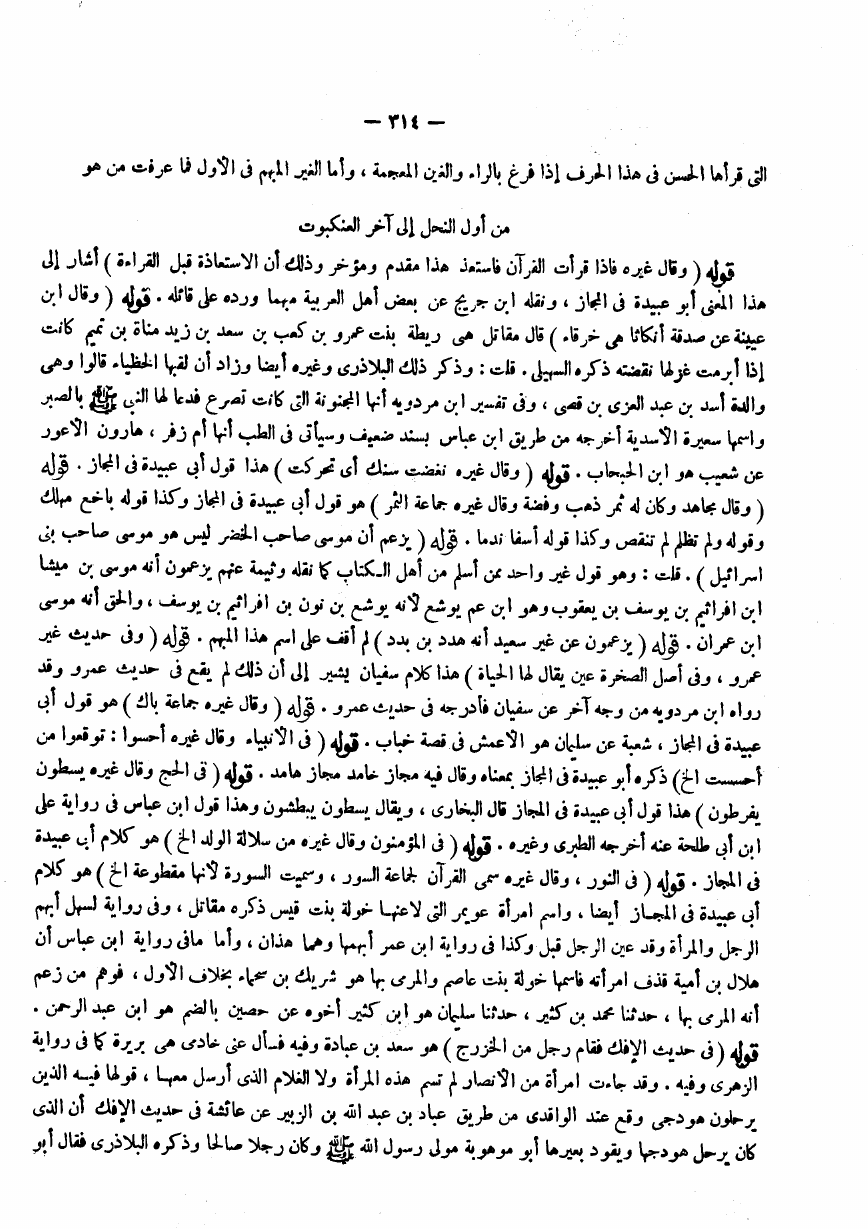 — ٣١٤ —
التى قرأها الحسن فى هذا الحرف إذا فرغ بالراء والغين المعجمة ، وأما الغير المبهم فى الأول فما عرفت من هو
من أول النحل إلى آخر العنكبوت
قوله ( وقال غيره فاذا قرأت القرآن فاستعذ هذا مقدم ومؤخر وذلك أن الاستعاذة قبل القراءة ) أشار إلى
هذا المعنى أبو عبيدة فى المجاز ، ونقله ابن جريج عن بعض أهل العربية مبهما ورده على قائله . قوله ( وقال ابن
عيينة عن صدقة أنكاثا هى خرقاء ) قال مقاتل هى ريطة بنت عمرو بن كعب بن سعد بن زيد مناة بن تميم كانت
إذا أبرمت غزلها نقضته ذكره السهيلى . قلت : وذكر ذلك البلاذرى وغيره أيضا وزاد أن لقبها الخظياء قالوا وهى
والدة أسد بن عبد العزى بن قصى ، وفى تفسير ابن مردويه أنها المجنونة التى كانت تصرع فدعا لها النبى ﷺ بالصبر
واسمها سعيرة الأسدية أخرجه من طريق ابن عباس بسند ضعيف وسيأتى فى الطب أنها أم زفر ، هارون الأعور
عن شعيب هو ابن الحبحاب . قوله ( وقال غيره نغضت سنك أى تحركت ) هذا قول أبى عبيدة فى المجاز . قوله
( وقال مجاهد وكان له ثمر ذهب وفضة وقال غيره جماعة الثمر ) هو قول أبى عبيدة فى المجاز وكذا قوله باخع مهلك
وقوله ولم تظلم لم تنقص وكذا قوله أسفا ندما . قوله ( يزعم أن موسى صاحب الخضر ليس هو موسى صاحب بنى
اسرائيل ) . قلت : وهو قول غير واحد ممن أسلم من أهل الكتاب كما نقله وثيمة عنهم يزعمون أنه موسى بن ميشا
ابن افرائيم بن يوسف بن يعقوب وهو ابن عم يوشع لأنه يوشع بن نون بن افرائيم بن يوسف ، والحق أنه موسى
ابن عمران . قوله ( يزعمون عن غير سعيد أنه هدد بن بدد ) لم أقف على اسم هذا المبهم . قوله ( وفى حديث غير
عمرو ، وفى أصل الصخرة عين يقال لها الحياة ) هذا كلام سفيان يشير إلى أن ذلك لم يقع فى حديث عمرو وقد
رواه ابن مردويه من وجه آخر عن سفيان فأدرجه فى حديث عمرو . قوله ( وقال غيره جماعة باك ) هو قول أبى
عبيدة فى المجاز ، شعبة عن سليمان هو الأعمش فى قصة خباب . قوله ( فى الأنبياء وقال غيره أحسوا : توقعوا من
أحسست الخ ) ذكره أبو عبيدة فى المجاز بمعناه وقال فيه مجاز خامد مجاز هامد . قوله ( فى الحج وقال غيره يسطون
يفرطون ) هذا قول أبى عبيدة فى المجاز قال البخارى ، ويقال يسطون يبطشون وهذا قول ابن عباس فى رواية على
ابن أبى طلحة عنه أخرجه الطبرى وغيره . قوله ( فى المؤمنون وقال غيره من سلالة الولد الخ ) هو كلام أبى عبيدة
فى المجاز . قوله ( فى النور ، وقال غيره سمى القرآن لجماعة السور ، وسميت السورة لأنها مقطوعة الخ ) هو كلام
أبى عبيدة فى المجاز أيضا ، واسم امرأة عويمر التى لاعنها خولة بنت قيس ذكره مقاتل ، وفى رواية لسهل أبهم
الرجل والمرأة وقد عين الرجل قبل وكذا فى رواية ابن عمر أبهمها وهما هذان ، وأما مافى رواية ابن عباس أن
هلال بن أمية قذف امرأته فاسمها خولة بنت عاصم والمرمى بها هو شريك بن سحماء بخلاف الأول ، فوهم من زعم
أنه المرمى بها ، حدثنا محمد بن كثير ، حدثنا سليمان هو ابن كثير أخوه عن حصين بالضم هو ابن عبد الرحمن .
قوله ( فى حديث الإفك فقام رجل من الخزرج ) هو سعد بن عبادة وفيه فسأل عنى خادمى هى بريرة كما فى رواية
الزهرى وفيه . وقد جاءت امرأة من الأنصار لم تسم هذه المرأة ولا الغلام الذى أرسل معها ، قولها فيه الذين
يرحلون هودجى وقع عند الواقدى من طريق عباد بن عبد الله بن الزبير عن عائشة فى حديث الإفك أن الذى
كان يرحل هودجها ويقود بعيرها أبو موهوبة مولى رسول الله ﷺ وكان رجلا صالحا وذكره البلاذرى فقال أبو